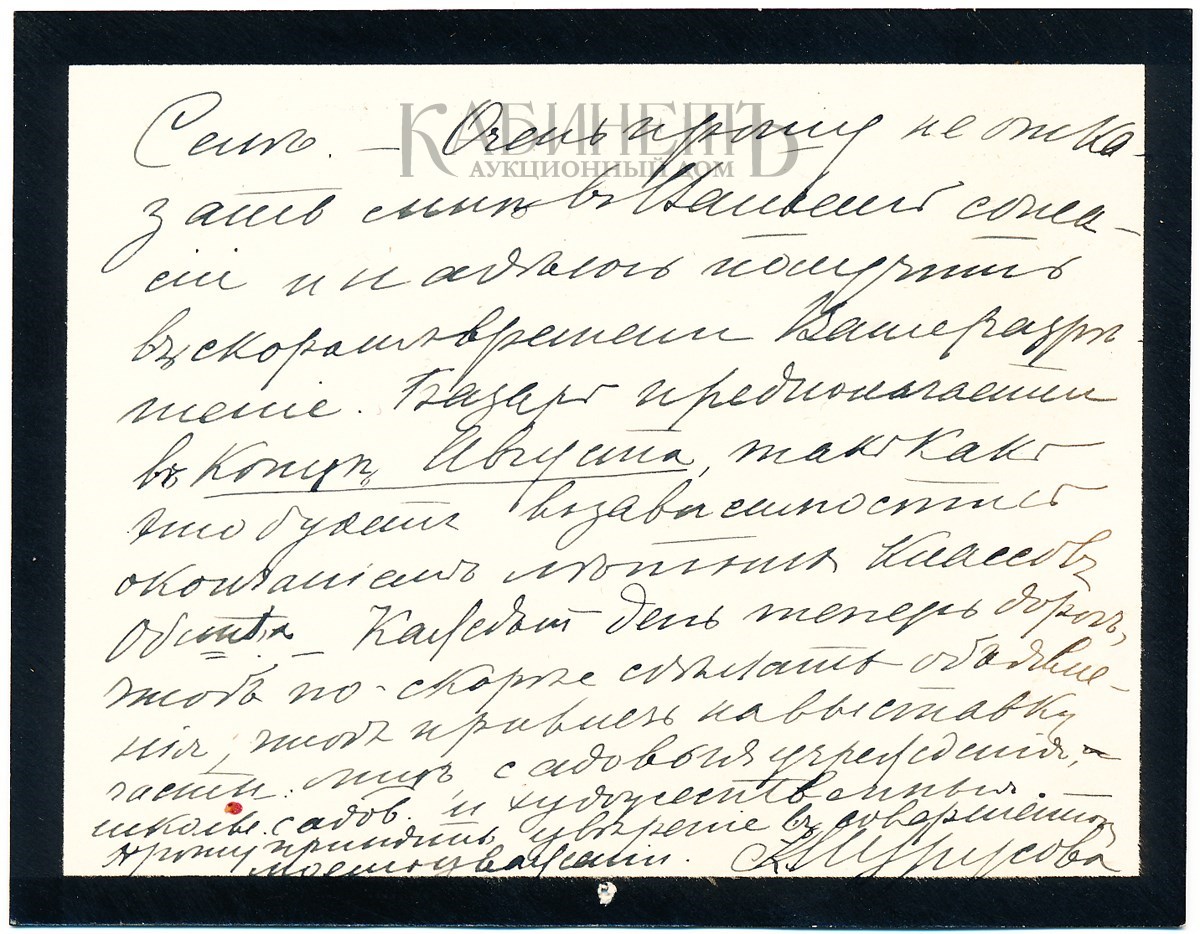 КАБИНЕТЪ
АУКЦИОННЫЙ ДОМ
Сент. — Очень прошу не отка-
зать мнѣ въ Вашемъ согла-
сіи и надѣюсь получить
въ скоромъ времени Ваше разрѣ-
шеніе. Базаръ предполагаетъ
въ Концѣ Августа, такъ какъ
это будетъ въ зависимости съ
окончаніемъ лѣтнихъ Классовъ
Общтва — Каждый день теперь дорогъ,
чтобъ по-скорѣе сдѣлать объявле-
нія, чтобъ привлечь на выставку
частн. лицъ садовыя учрежденія, и
школы садов. и художественныя
прошу принять увѣреніе въ совершенном
моемъ уваженіи.